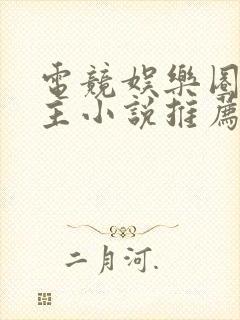 電競娛樂圈
主小說推薦
二月河.